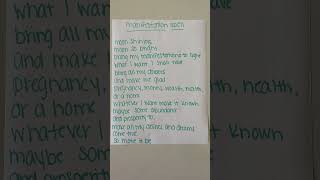 manifestation spell
moon shining,
moon so bright
bring my manifestations to light
what I want I shall have
bring all my desires
and make me glad
pregnancy, money, wealth, health,
or a home
whatever I want make it known
maybe some abundance
and prosperity to,
make all my desires and dreams
come true.
so make it be